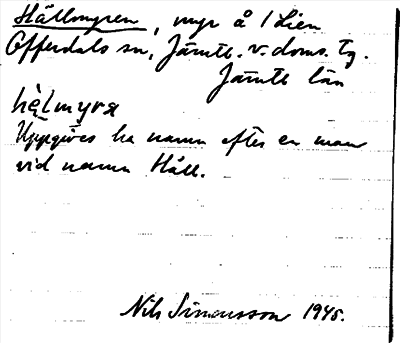 Hällmyren, myr å / Lien
Offerdals sn, Jämtl. v. doms. tg.
Jämtl län
hèlmyrα
Uppgives ha namn efter en man
vid namn Häll.
Nils Simonsson 1945.